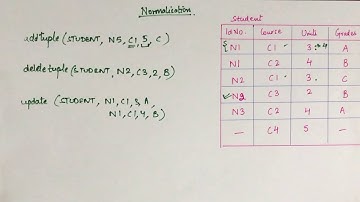 Normalization
addtuple (STUDENT, N5, C1, 5, C)
deletetuple (STUDENT, N2, C3, 2, B)
update (STUDENT, N1, C1, 3, A,
N1, C1, 4, B)
Student
Id No. Course Units Grades
N1 C1 3 4 A
N1 C2 4 B
N2 C1 3 C
N2 C3 2 B
N3 C2 4 A
— C4 5 —